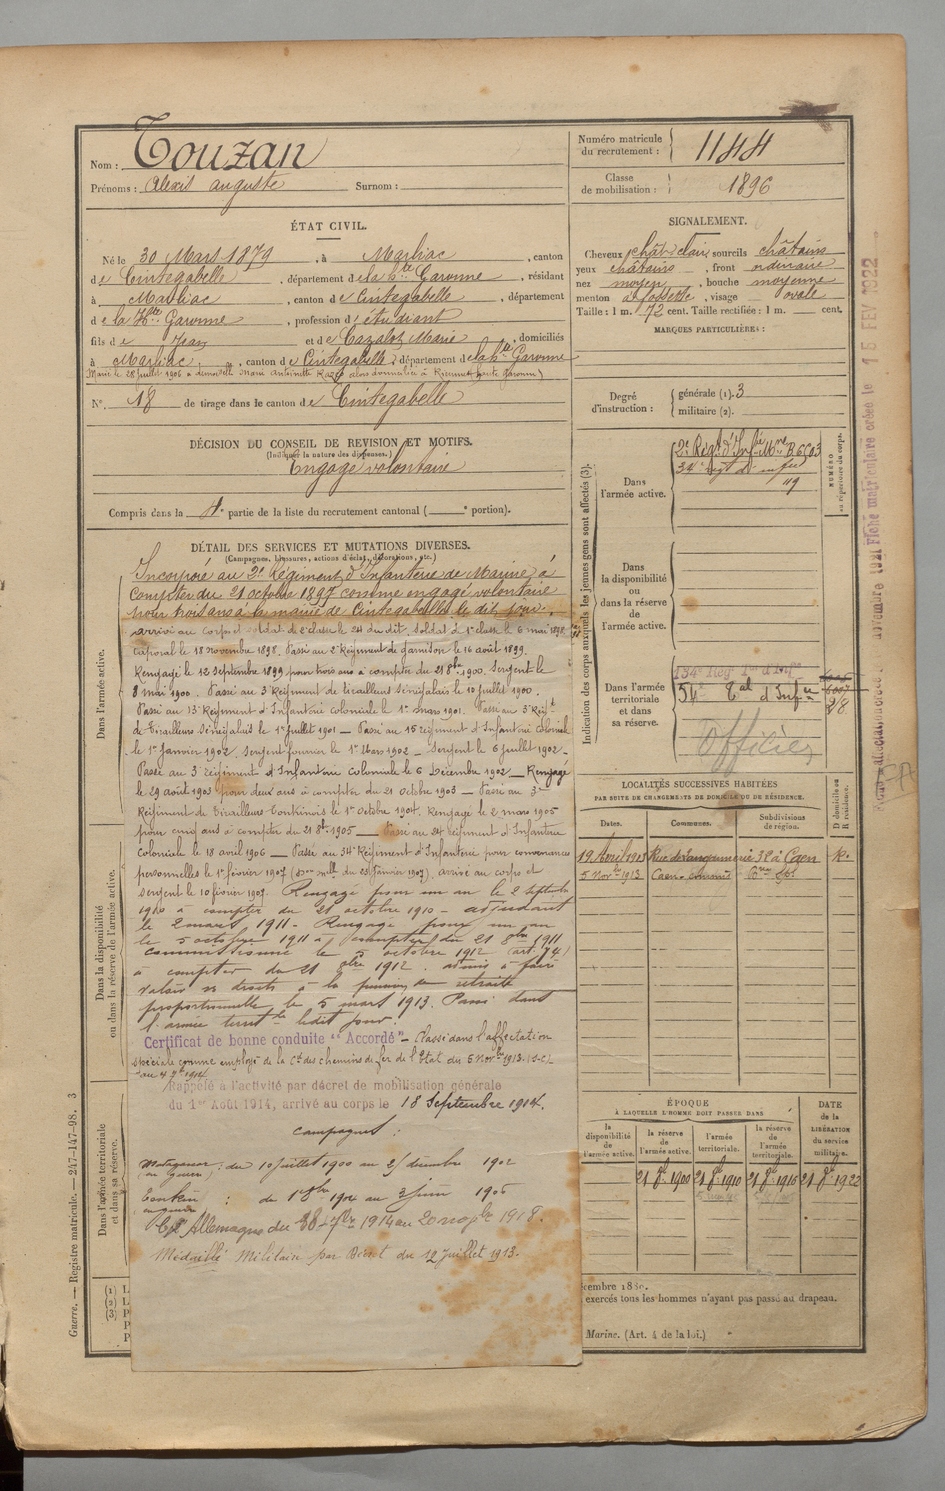 Nom : Touzan
Prénoms : Alexis Auguste Surnom :
Numéro matricule du recrutement : 1144
Classe de mobilisation : 1896
ÉTAT CIVIL.
Né le 30 Mars 1879, à Marliac, canton
de Cintegabelle, département de la Hte Garonne, résidant
à Marliac, canton de Cintegabelle, département
de la Hte Garonne, profession d'étudiant
fils de Jean et de Cazalot Marie, domiciliés
à Marliac, canton de Cintegabelle, département de la Hte Garonne
Marié le 28 juillet 1906 à demoiselle Marie Antoinette
N° 18 de tirage dans le canton de Cintegabelle
SIGNALEMENT.
Cheveux chât-clair, sourcils châtains
yeux châtains, front ordinaire
nez moyen, bouche moyenne
menton à fossette, visage ovale
Taille : 1 m. 72 cent. Taille rectifiée : 1 m. cent.
MARQUES PARTICULIÈRES :
Degré d'instruction : générale (1). 3
militaire (2).
DÉCISION DU CONSEIL DE REVISION ET MOTIFS.
(Indiquer la nature des dispenses.)
Engagé volontaire
Compris dans la 4e partie de la liste du recrutement cantonal ( e portion).
DÉTAIL DES SERVICES ET MUTATIONS DIVERSES.
(Campagnes, blessures, actions d'éclat, décorations, etc.)
Dans l'armée active.
Incorporé au 2e Régiment d'Infanterie de Marine à
compter du 21 octobre 1897 comme engagé volontaire
pour trois ans à la mairie de Cintegabelle le dit jour.
arrivé au corps et soldat de 2e classe le 24 du dit, Soldat de 1e classe le 6 mai 1898
Caporal le 18 novembre 1898. Passé au 2e Régiment de garnison le 16 août 1899.
Rengagé le 12 Septembre 1899 pour trois ans à compter du 21 8bre 1900. Sergent le
8 mai 1900. Passé au 3e Régiment de tirailleurs Sénégalais le 10 juillet 1900.
Passé au 13e Régiment d'Infanterie coloniale le 1er mars 1901. Passé au 3e Régt
de Tirailleurs Sénégalais le 1er juillet 1901 — Passé au 15e régiment d'Infanterie Coloniale
le 1er Janvier 1902. Sergent fourrier le 1er Mars 1902 — Sergent le 6 juillet 1902 —
Passé au 3e régiment d'Infanterie Coloniale le 6 Décembre 1902 — Rengagé
le 29 août 1903 pour deux ans à compter du 21 octobre 1903 — Passé au 3e
Régiment de Tirailleurs Tonkinois le 1er Octobre 1904. Rengagé le 2 mars 1905
pour cinq ans à compter du 21 8bre 1905 — Passé au 24e Régiment d'Infanterie
Coloniale le 18 avril 1906 — Passé au 34e Régiment d'Infanterie pour convenances
personnelles le 1er février 1907 (Don mlle du 23 janvier 1907). arrivé au corps et
sergent le 10 février 1907. Rengagé pour un an le 2 septembre
1910 à compter du 21 octobre 1910 — adjudant
le 2 mars 1911 — Rengagé pour un an
le 5 octobre 1911 à compter du 21 8bre 1911
Commissionné le 5 octobre 1912 (art 74)
à compter du 21 8bre 1912. admis à faire
valoir ses droits à la pension de retraite
proportionnelle le 5 mars 1913. Passé dans
l'armée territle ledit jour.
Certificat de bonne conduite "Accordé" — Classé dans l'affectation
spéciale comme employé de la Cie des chemins de fer de l'État du 5 Novbre 1913
Rappelé à l'activité par décret de mobilisation générale
du 1er Août 1914, arrivé au corps le 18 Septembre 1914.
Campagnes :
Madagascar : du 10 juillet 1900 au 2 décembre 1902
(en guerre)
Tonkin : du 1 8bre 1904 au 3 juin 1906
en guerre
Cgt Allemagne du 18 7bre 1914 au 20 novbre 1918.
Médaillé Militaire par Décret du 12 Juillet 1913.
Dans la disponibilité
ou dans la réserve de l'armée active.
Dans l'armée territoriale
et dans sa réserve.
Indication des corps auxquels les jeunes gens sont affectés (3).
NUMÉRO
au répertoire du corps.
Dans
l'armée active.
2e Régt d'Infie Mne B 6603
34e régt d'infie
119
Dans
la disponibilité
ou
dans la réserve
de
l'armée active.
Dans l'armée
territoriale
et dans
sa réserve.
134e Régt Tal d'Infie
54e Tal d'Infie
Officier
LOCALITÉS SUCCESSIVES HABITÉES
PAR SUITE DE CHANGEMENTS DE DOMICILE OU DE RÉSIDENCE.
Dates. Communes. Subdivisions de région. D domicile ou R résidence.
19 Avril 1913 Caen R.
5 Novbre 1913 Caen
ÉPOQUE
À LAQUELLE L'HOMME DOIT PASSER DANS
la disponibilité de l'armée active.
la réserve de l'armée active.
l'armée territoriale.
la réserve de l'armée territoriale.
DATE de la LIBÉRATION du service militaire.
21 8bre 1900 21 8bre 1910 21 8bre 1916 21 8bre 1922
exercés tous les hommes n'ayant pas passé au drapeau.
Marine. (Art. 4 de la loi.)
Guerre. — Registre matricule. — 247-147-98. 3
Fiche matriculaire créée le 15 FEV 1922